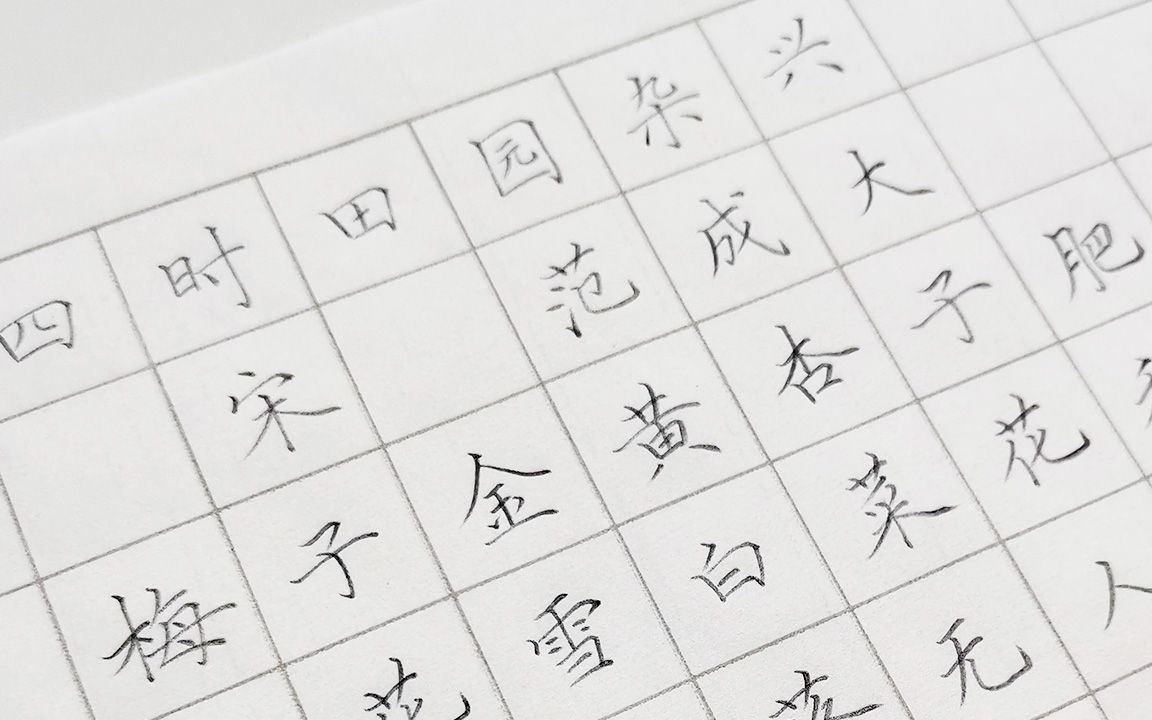 四时田园杂兴
宋 范成大
梅子金黄杏子肥
花雪白菜花
无人